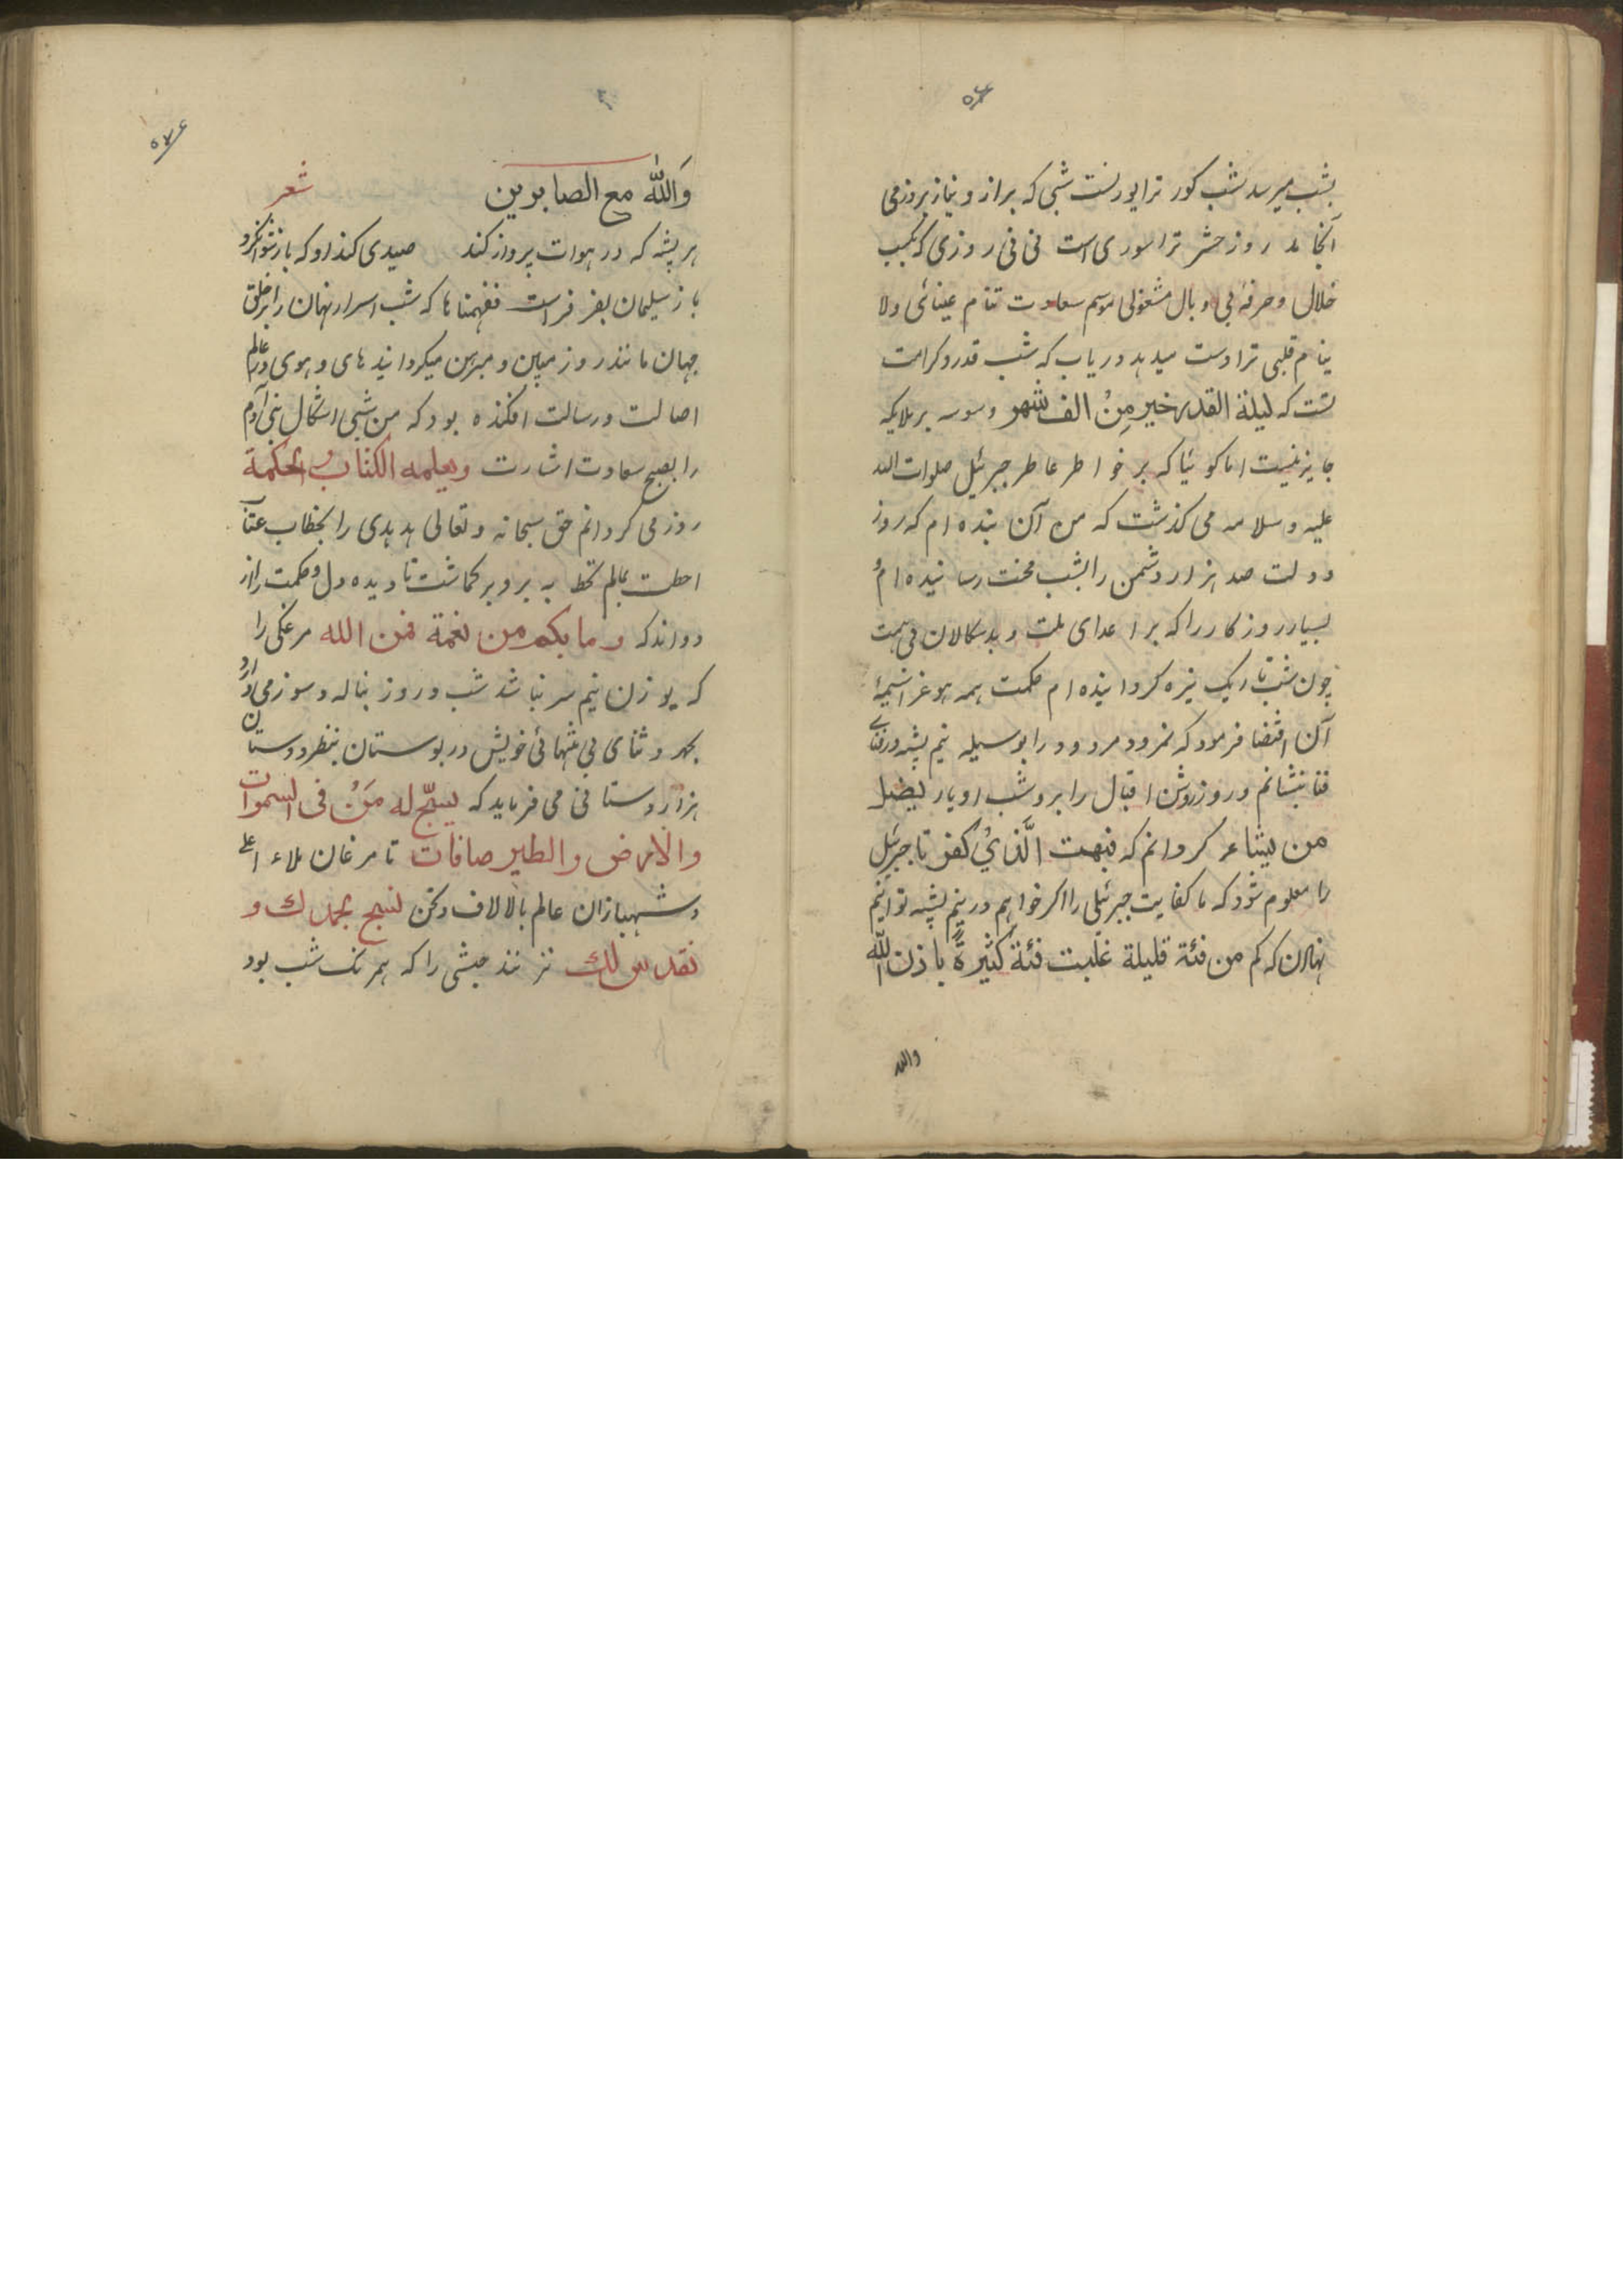 بشب میرسد شب کور ترا یورتست شبی که براز و نیاز بروز می
آنجامد روز حشر ترا سوری است نی نی روزی که بکسب
حلال و حرفهٔ بی وبال مشغولی موسم سعادت تنام عینائی ولا
ینام قلبی ترا دست میدهد دریاب که شب قدر و کرامت
تست که لیلة القدر خیر مِنْ الف شهر وسوسه بر ملایکه
جایز نیست اما کوئیا که بر خواطر عاطر جبرئیل صلوات الله
علیه و سلامه می کذشت که من آن بنده ام که روز
دولت صد هزار دشمن را بشب محنت رسانیده ام
بسیار روز کار را که بر اعدای ملت و بدسکالان بی همت
چون شب تاریک تیره کردانیده ام حکمت همه هو عز اسمه
آن اقتضا فرمود که نمرود مردود را بوسیله نیم پشه در فنای
فنا بنشانم و روز روشن اقبال را برو شب ادبار یضل
من یشاء کردانم که فبهت الَّذیْ کفر تا جبرئیل
را معلوم شود که ما کفایت جبرئیلی را اکر خواهیم در نیم پشه توانیم
نهادن که کم من فئة قلیلة غلبت فئة کثیرةً باذن الله
والله
وَاللّٰه مع الصابرین شعر
هر پشه که در هوات پرواز کند صیدی کند او که باز نتواند کرد
باز سلیمان بفر فراست ففهمناها که شب اسرار نهان را بر خلق
جهان مانند روز مبین و مبرهن میکردانید های و هوی در عالم
اصالت و رسالت افکنده بود که من شبی اشکال بنی آدم
را بصبح سعادت اشارت ویعلمه الکتاب والحکمة
روز می کردانم حق سبحانه و تعالی هدهدی را بخطاب عتاب
احطت بمالم تحط به برو برکماشت تا دیده دل و حکمت را از
دواند که وما بکم من نعمة فمن الله مرغکی را
که بوزن نیم سر نباشد شب و روز بناله و سوز می آرد
بحمد و ثنای بی منتهائی خویش در بوستان بنظر دوستان
هزار دستانی می فرماید که یسبّح له مَنْ فی السموات
والارض والطیر صافات تا مرغان ملاء اعلی
و شهبازان عالم بالا لاف ونحن نسبح بحمدك و
نقدس لك نزنند حبشی را که همرنک شب بود